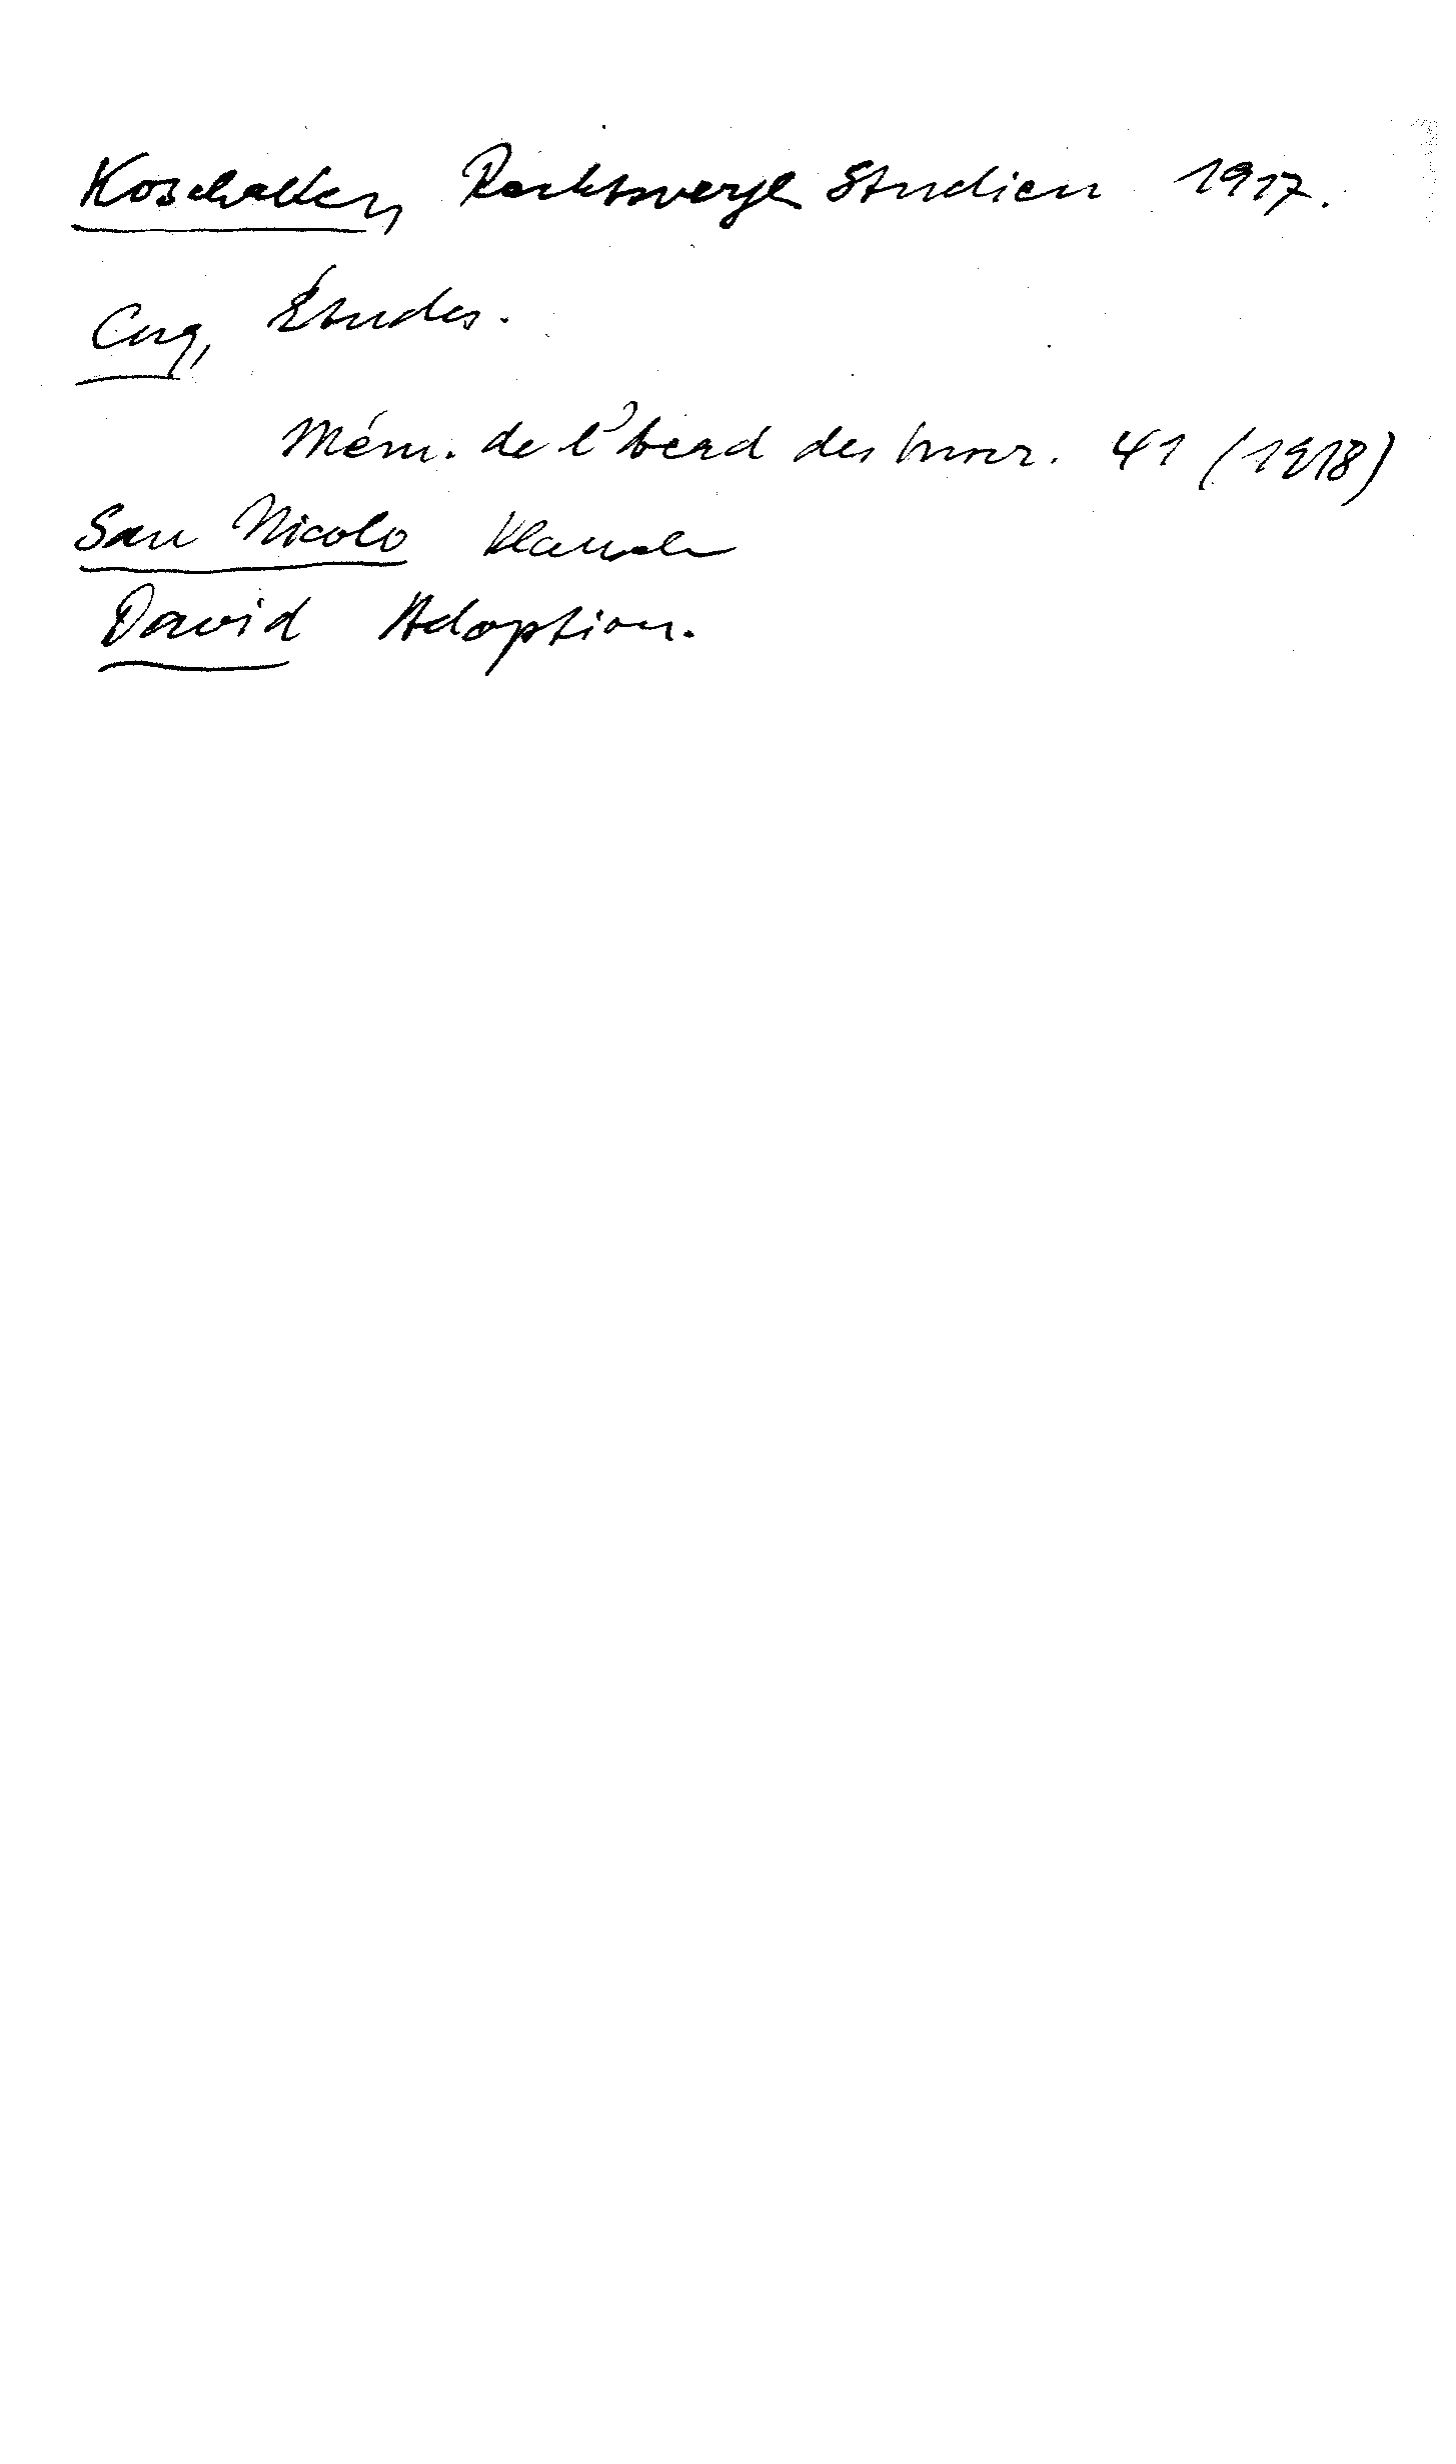 Koschaker, Rechtsvergl Studien 1917.
Cuq, Études.
Mém. de l'Acad des Inscr. 41 (1918)
San Nicolo Klauseln
David Adoption.